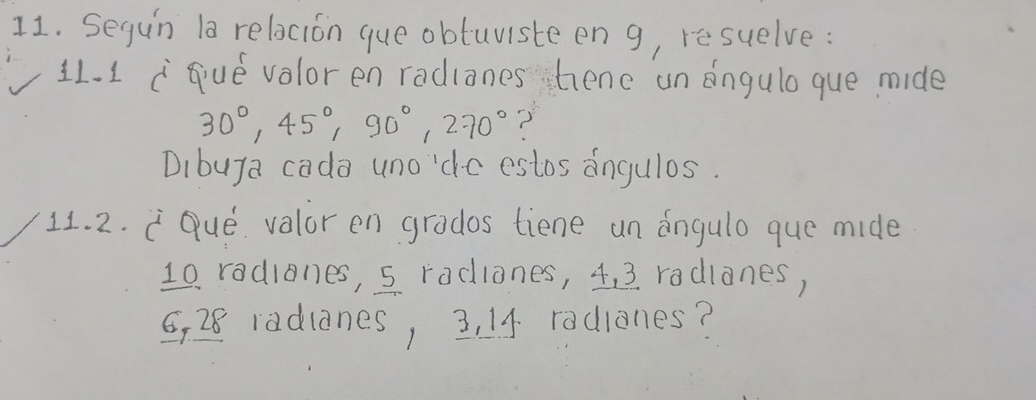 11. Según la relación que obtuviste en 9, resuelve:
11.1 ¿Qué valor en radianes tiene un ángulo que mide
30°, 45°, 90°, 270°?
Dibuja cada uno de estos ángulos.
11.2. ¿Qué valor en grados tiene un ángulo que mide
10 radianes, 5 radianes, 4,3 radianes,
6,28 radianes, 3,14 radianes?